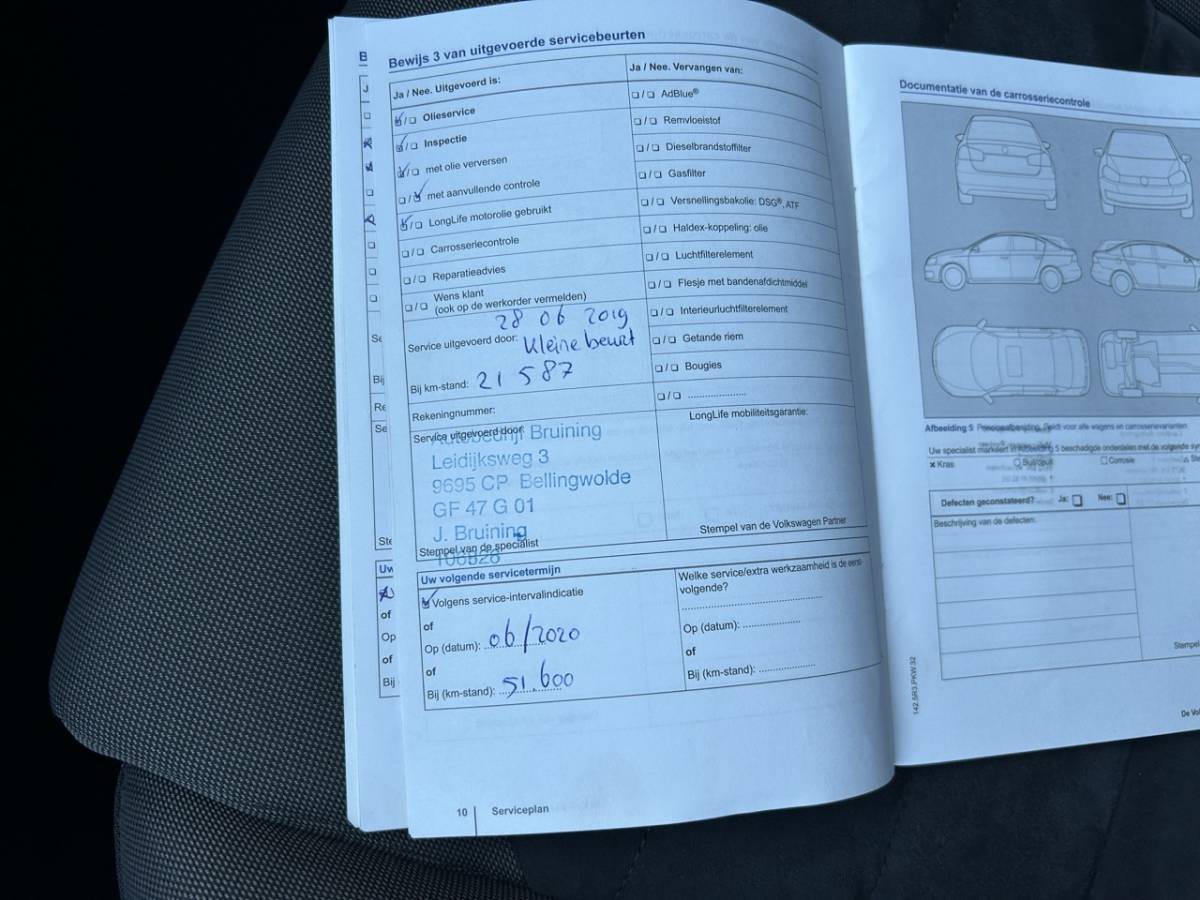 Bewijs 3 van uitgevoerde servicebeurten
Ja / Nee. Uitgevoerd is:
/ Olieservice
/ Inspectie
/ met olie verversen
/ met aanvullende controle
/ LongLife motorolie gebruikt
/ Carrosseriecontrole
/ Reparatieadvies
/ Wens klant
(ook op de werkorder vermelden)
28 06 2019
Service uitgevoerd door: Kleine beurt
Bij km-stand: 21 587
Rekeningnummer:
Service uitgevoerd door:
Autobedrijf Bruining
Leidijksweg 3
9695 CP Bellingwolde
GF 47 G 01
J. Bruining
Stempel van de specialist
Ja / Nee. Vervangen van:
/ AdBlue®
/ Remvloeistof
/ Dieselbrandstoffilter
/ Gasfilter
/ Versnellingsbakolie: DSG®, ATF
/ Haldex-koppeling: olie
/ Luchtfilterelement
/ Flesje met bandenafdichtmiddel
/ Interieurluchtfilterelement
/ Getande riem
/ Bougies
/ ....................
LongLife mobiliteitsgarantie:
Stempel van de Volkswagen Partner
Uw volgende servicetermijn
Volgens service-intervalindicatie
of
Op (datum): 06/2020
of
Bij (km-stand): 51.600
Welke service/extra werkzaamheid is de eerst-
volgende?
Op (datum): ....................
of
Bij (km-stand): ....................
10 Serviceplan
Documentatie van de carrosseriecontrole
Afbeelding 5
Uw specialist markeert in Afbeelding 5 beschadigde onderdelen met de volgende
Kras
Corrosie
Defecten geconstateerd? Ja: Nee:
Beschrijving van de defecten:
Stempel
142.5R3.PKW.32
De